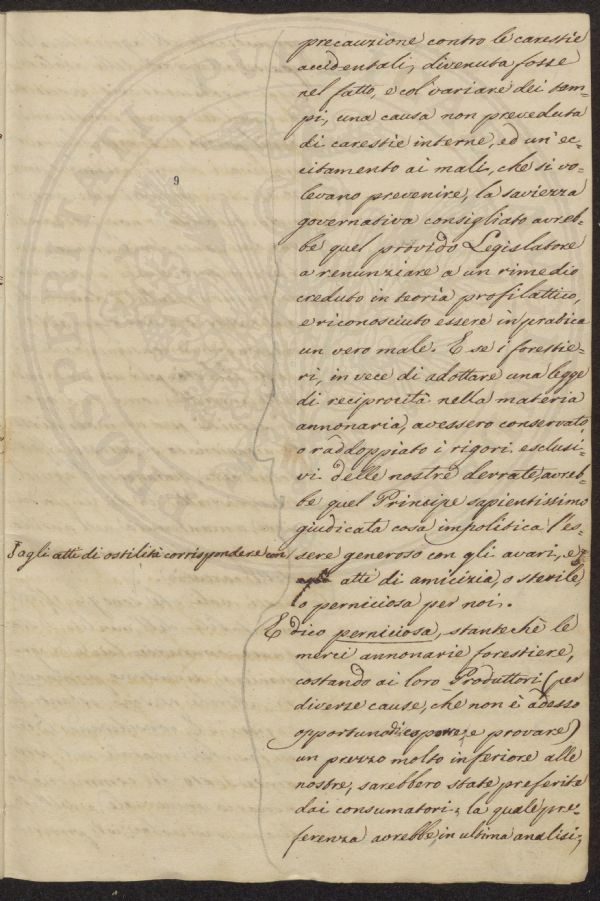 precauzione contro le carestie
accidentali, divenuta fosse
nel fatto, e col variare dei tem-
pi, una causa non preveduta
di carestie interne, ed un' ec-
citamento ai mali, che si vo-
levano prevenire, la saviezza
governativa consigliato avreb-
be quel provido Legislatore
a renunziare a un rimedio
creduto in teoria profilattico,
e riconosciuto essere in pratica
un vero male. E se i forestie-
ri, in vece di adottare una legge
di reciprocità nella materia
annonaria, avessero conservato,
o raddoppiato i rigori esclusi-
vi delle nostre derrate, avreb-
be quel Principe sapientissimo
giudicata cosa impolitica l'es-
sere generoso con gli avari, e
agli atti di ostilità corrispondere con
atti di amicizia, o sterile,
o perniciosa per noi.
E dico perniciosa, stantechè le
merci annonarie forestiere,
costando ai loro Produttori (per
diverse cause, che non è adesso
opportuno di esporre, e provare)
un prezzo molto inferiore alle
nostre, sarebbero state preferite
dai consumatori; la quale pre-
ferenza avrebbe, in ultima analisi,
9
PROSPERITATI PU